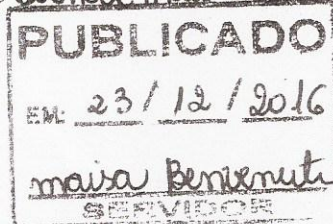 PUBLICADO
EM: 23 / 12 / 2016
maisa Benvenuti
SERVIDOR